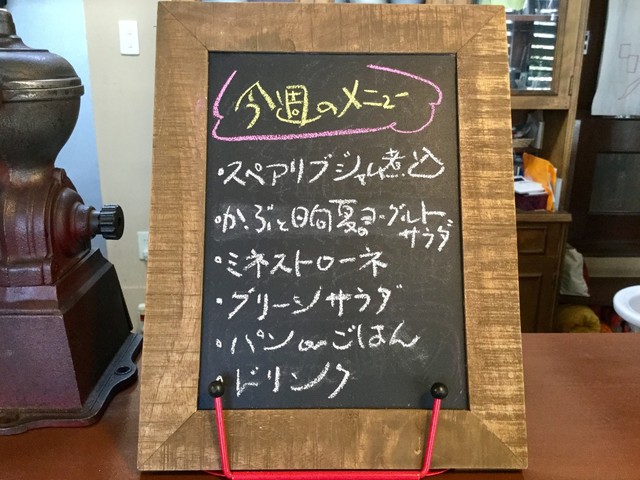 今週のメニュー
・スペアリブジャム煮込
・かぶと日向夏ヨーグルト
サラダ
・ミネストローネ
・グリーンサラダ
・パンorごはん
・ドリンク